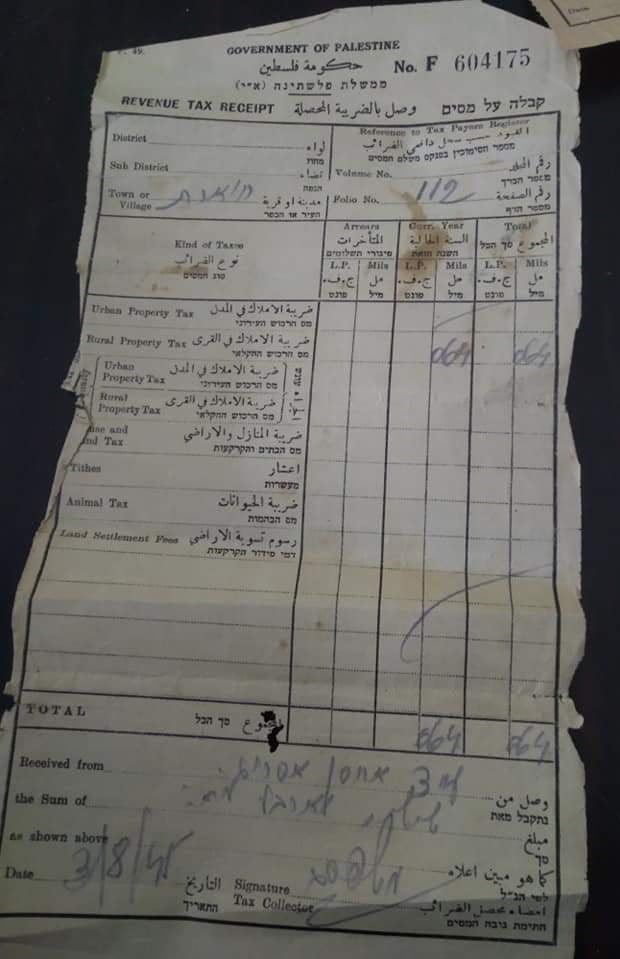 GOVERNMENT OF PALESTINE
حكومة فلسطين
ממשלת פלשתינה (א״י)
No. F 604175
REVENUE TAX RECEIPT وصل بالضريبة المحصلة קבלה על מסים
District لواء
מחוז
Sub District قضاء
הנפה
Town or Village مدينة او قرية
העיר או הכפר
Reference to Tax Payers Register
القيود حسب سجل دافعي الضرائب
מספר הסימוכין בפנקס משלם המסים
Volume No. رقم المجلد
מספר הכרך
Folio No. 112 رقم الصفحة
מספר הדף
Kind of Taxes
نوع الضرائب
סוג המסים
Arrears
المتأخرات
פיגורי תשלומים
Curr. Year
السنة الحالية
השנה הזאת
Total
المجموع
סך הכל
L.P. Mils L.P. Mils L.P. Mils
ج.ف. مل ج.ف. مل ج.ف. مل
פונט מיל פונט מיל פונט מיל
Urban Property Tax ضريبة الاملاك في المدن
מס הרכוש העירוני
Rural Property Tax ضريبة الاملاك في القرى 064 064
מס הרכוש החקלאי
Urban Property Tax ضريبة الاملاك في المدن
מס הרכוש העירוני
Rural Property Tax ضريبة الاملاك في القرى
מס הרכוש החקלאי
use and
nd Tax ضريبة المنازل والاراضي
מס הבתים והקרקעות
Tithes اعشار
מעשרות
Animal Tax ضريبة الحيوانات
מס הבהמות
Land Settlement Fees رسوم تسوية الاراضي
דמי סידור הקרקעות
TOTAL סך הכל المجموع 064 064
Received from وصل من
נתקבל מאת
the Sum of مبلغ
סך
as shown above كما هو مبين اعلاه
לפי הנ״ל
Date 3/8/45 التاريخ
התאריך
Signature Tax Collector امضاء محصل الضرائب
חתימת גובה המסים